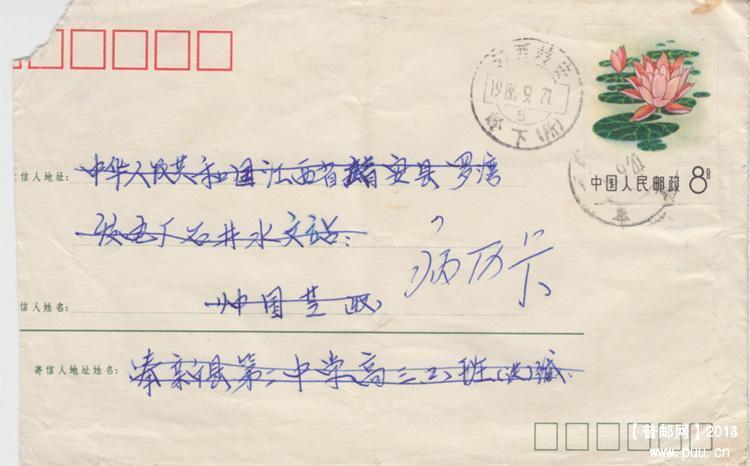 江西靖安
1986.9.21
5
中国人民邮政 8分
信人地址: 中华人民共和国江西省靖安县罗湾
发电厂石井水文站:
病历卡
信人姓名: 帅国芝 收
寄信人地址姓名: 奉新县第二中学高三(2)班(边)缄.
【普邮网】
www.puu.cn